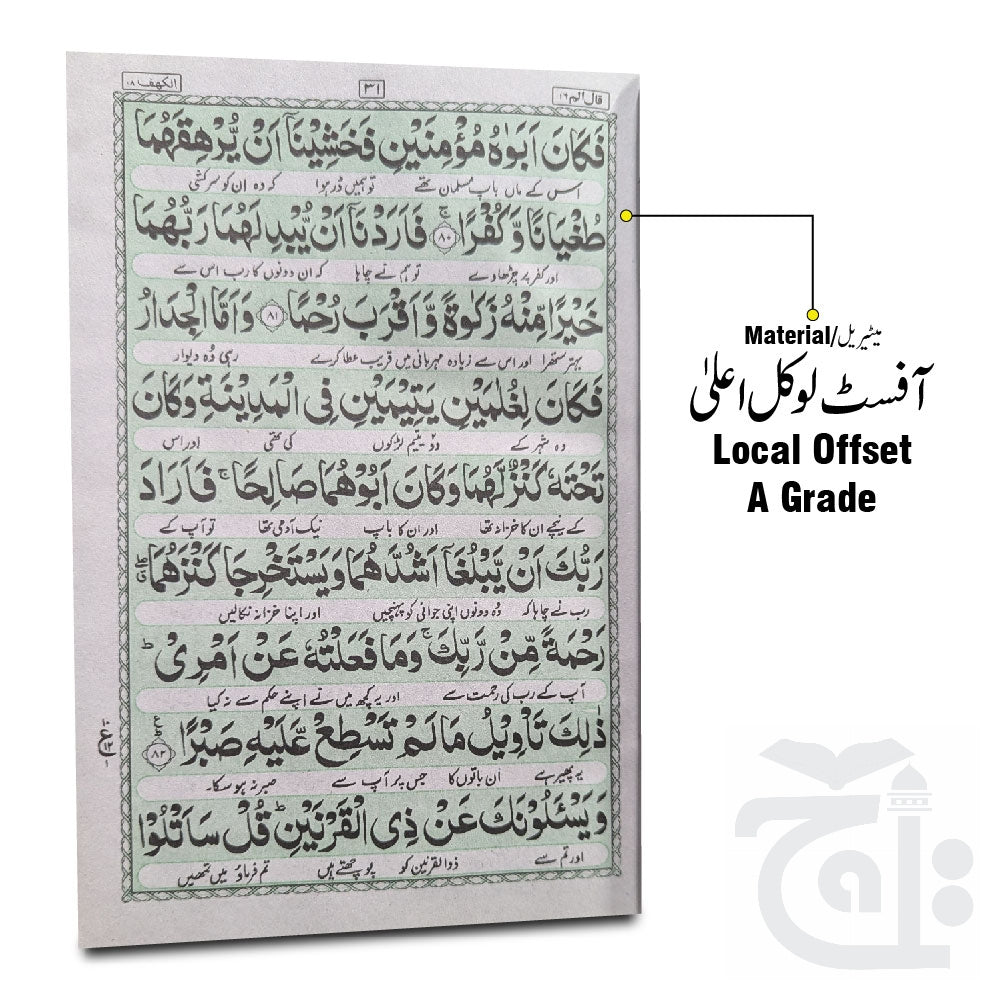 قال الم ١٦
٣١
الکھف ١٨
فَكَانَ اَبَوٰهُ مُؤْمِنَيْنِ فَخَشِيْنَاۤ اَنْ يُّرْهِقَهُمَا
اس کے ماں باپ مسلمان تھے تو ہمیں ڈر ہوا کہ وہ ان کو سرکشی
طُغْيَانًا وَّكُفْرًا ۚ ٨٠ فَاَرَدْنَاۤ اَنْ يُّبْدِلَهُمَا رَبُّهُمَا
اور کفر پر چڑھاوے تو ہم نے چاہا کہ ان دونوں کا رب اس سے
خَيْرًا مِّنْهُ زَكٰوةً وَّاَقْرَبَ رُحْمًا ٨١ وَاَمَّا الْجِدَارُ
بہتر ستھرا اور اس سے زیادہ مہربانی میں قریب عطا کرے رہی وہ دیوار
فَكَانَ لِغُلٰمَيْنِ يَتِيْمَيْنِ فِى الْمَدِيْنَةِ وَكَانَ
وہ شہر کے دو یتیم لڑکوں کی تھی اور اس
تَحْتَهٗ كَنْزٌ لَّهُمَا وَكَانَ اَبُوْهُمَا صَالِحًا ۚ فَاَرَادَ
کے نیچے ان کا خزانہ تھا اور ان کا باپ نیک آدمی تھا تو آپ کے
رَبُّكَ اَنْ يَّبْلُغَاۤ اَشُدَّهُمَا وَيَسْتَخْرِجَا كَنْزَهُمَا
رب نے چاہا کہ وہ دونوں اپنی جوانی کو پہنچیں اور اپنا خزانہ نکالیں
رَحْمَةً مِّنْ رَّبِّكَ ۚ وَمَا فَعَلْتُهٗ عَنْ اَمْرِىْ ؕ
آپ کے رب کی رحمت سے اور یہ کچھ میں نے اپنے حکم سے نہ کیا
ذٰلِكَ تَاْوِيْلُ مَا لَمْ تَسْطِعْ عَّلَيْهِ صَبْرًا ٨٢
یہ پھیر ہے ان باتوں کا جس پر آپ سے صبر نہ ہو سکا۔
وَيَسْـَٔلُوْنَكَ عَنْ ذِى الْقَرْنَيْنِ ؕ قُلْ سَاَتْلُوْا
اور تم سے ذوالقرنین کو پوچھتے ہیں تم فرماؤ میں تمھیں
Material/میٹیریل
آفسٹ لوکل اعلیٰ
Local Offset
A Grade